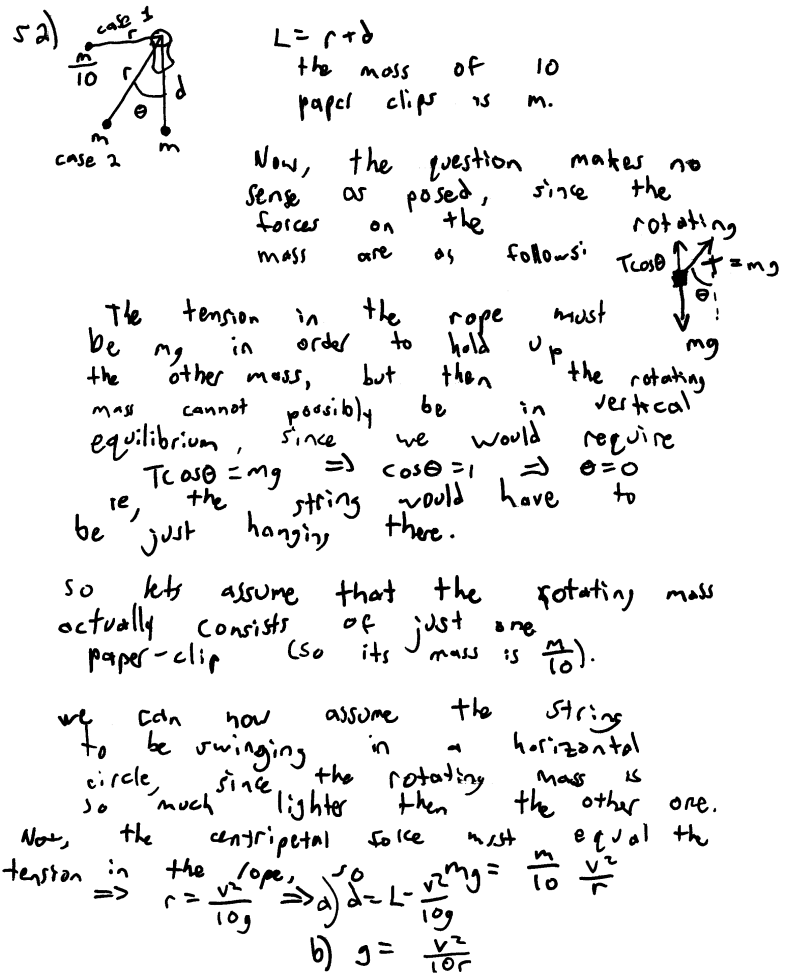 52)
case 1
r
m/10
r
d
θ
m
m
case 2
L = r + d
the mass of 10
paper clips is m.
Now, the question makes no
sense as posed, since the
forces on the rotating
mass are as follows:
Tcosθ
T = mg
θ
mg
The tension in the rope must
be mg in order to hold up
the other mass, but then the rotating
mass cannot possibly be in vertical
equilibrium, since we would require
Tcosθ = mg ⇒ cosθ = 1 ⇒ θ = 0
ie, the string would have to
be just hanging there.
so lets assume that the rotating mass
actually consists of just one
paper-clip (so its mass is m/10).
we can now assume the string
to be swinging in a horizontal
circle, since the rotating mass is
so much lighter then the other one.
Now, the centripetal force must equal the
tension in the rope, so mg = m/10 v²/r
⇒ r = v²/10g ⇒ a) d = L - v²/10g
b) g = v²/10r